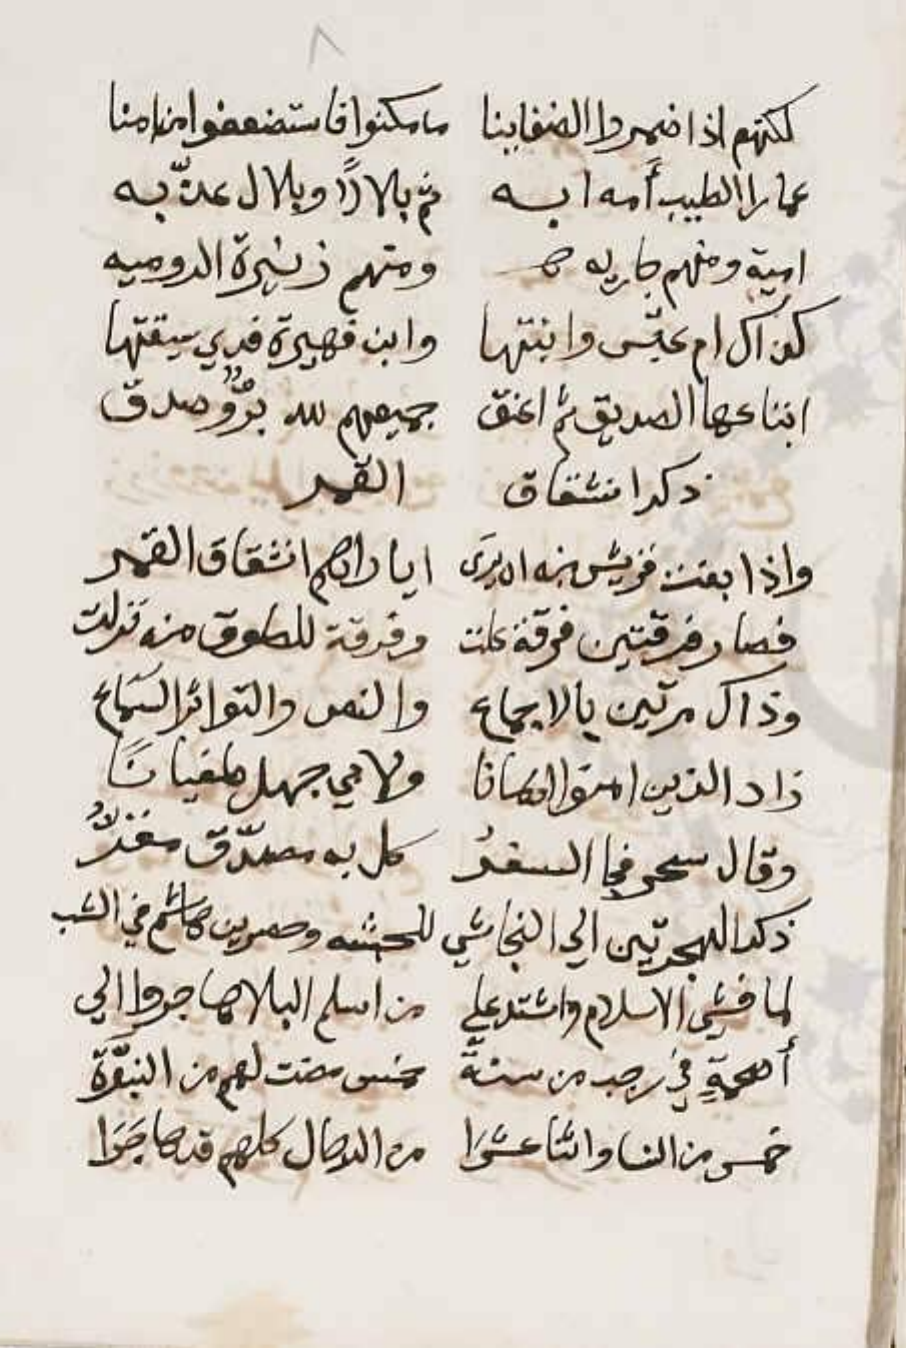 ٨
لكنهم اذا ضمروا الضغاينا ما مكنوا فاستضعفوا من امنا
عمارا الطيب أمه ابه ثم بلالا وبلال عذب به
امية ومنهم جاريه ومنهم زنيرة الروميه
كذاك ام عبس وابنتها وابن فهيرة فدي سبقتها
ابتاعها الصديق ثم اعتق جميعهم لله برٌّ وصدق
ذكر انشقاق القمر
واذ ابغت قريش منه ان يرى ايا اراهم انشقاق القمر
فصار فرقتين فرقة علت وفرقة للطوق منه نزلت
وذاك مرتين بالاجماع والنص والتواتر السماع
زاد الذين امنوا ايمانا ولابي جهل طغيانا
وقال سحر فجا السفر كل به مصدق مقر
ذكر الهجرتين الي النجاشي للحبشه وحصر بن هاشم في الشب
لما فشى الاسلام واشتد علي من اسلم البلا هاجروا الي
أصحمة في رجب من سنة خمس مضت لهم من النبوّة
خمس من النسا واثنا عشرا من الرجال كلهم قد هاجرا